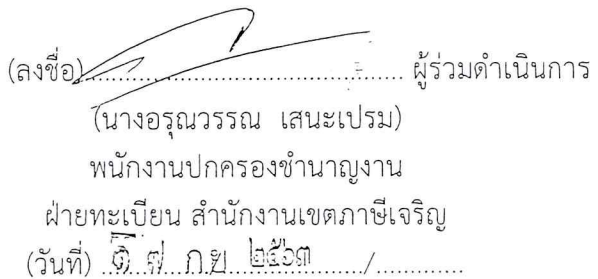 (ลงชื่อ)........................................ ผู้ร่วมดำเนินการ
(นางอรุณวรรณ เสนะเปรม)
พนักงานปกครองชำนาญงาน
ฝ่ายทะเบียน สำนักงานเขตภาษีเจริญ
(วันที่) ๑ ๗ ก.ย. ๒๕๖๓ /............